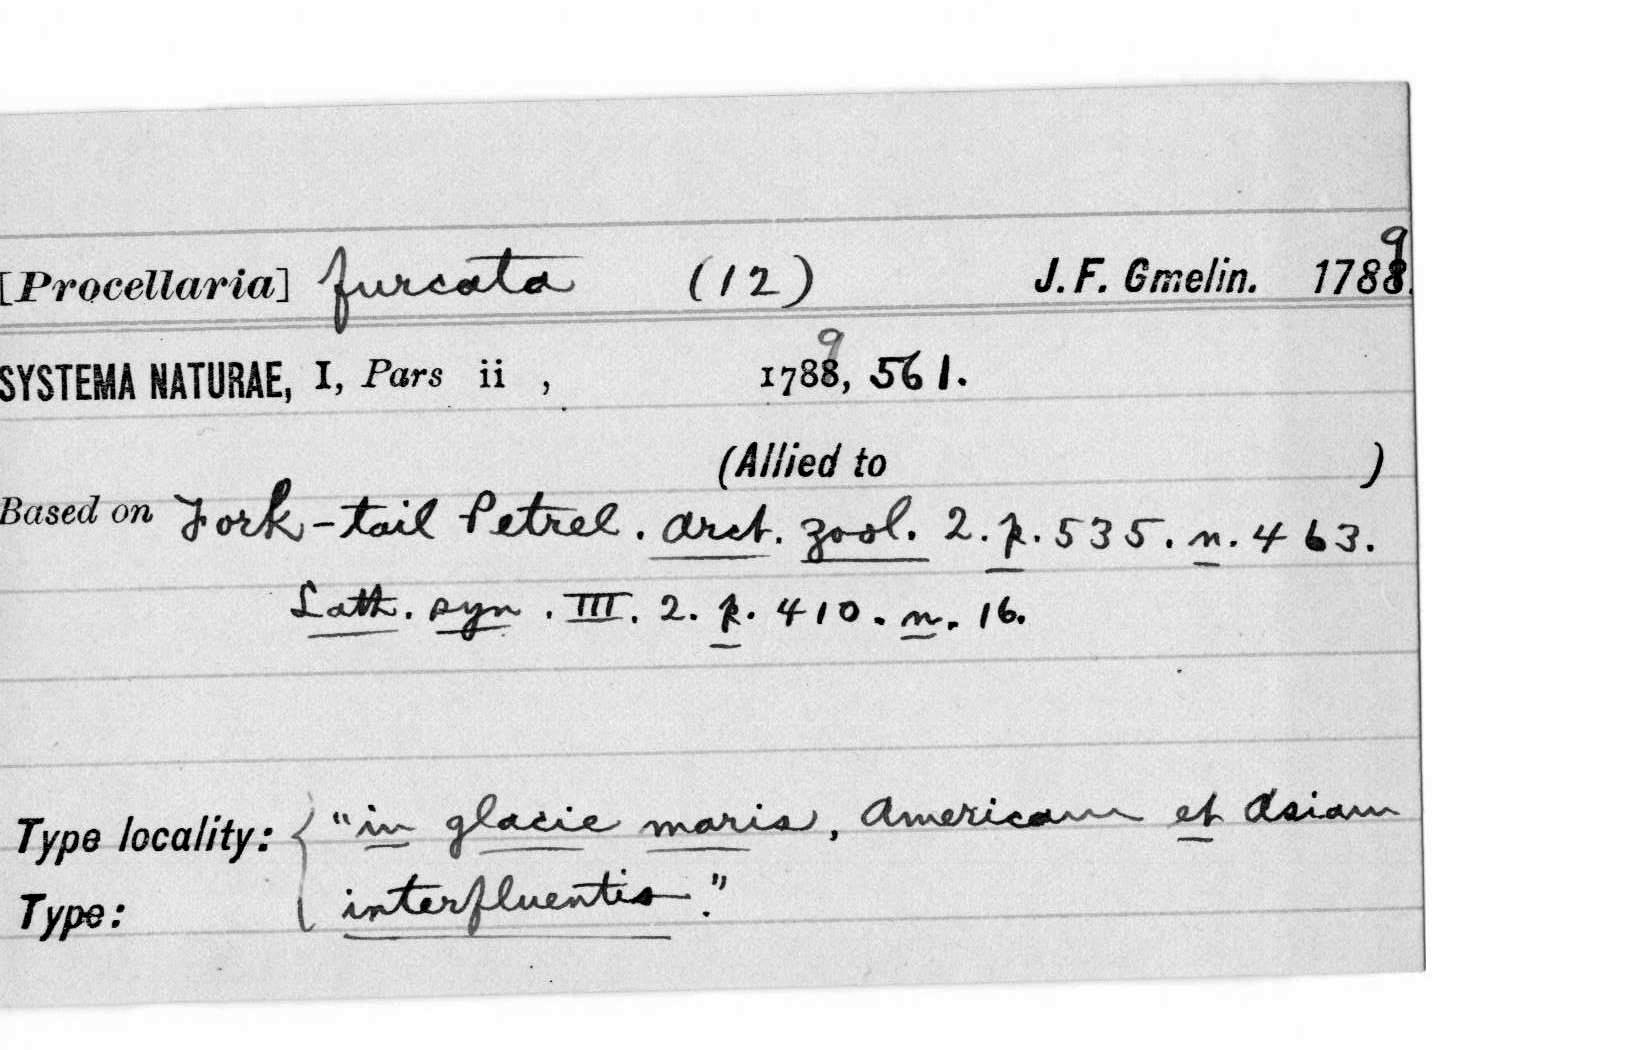 [Procellaria] furcata (12) J. F. Gmelin. 1789
SYSTEMA NATURAE, I, Pars ii , 1789, 561.
(Allied to )
Based on Fork-tail Petrel. arct. zool. 2. p. 535. n. 463.
Lath. syn. III. 2. p. 410. n. 16.
Type locality: { "in glacie maris, Americam et Asiam
Type: interfluentis."